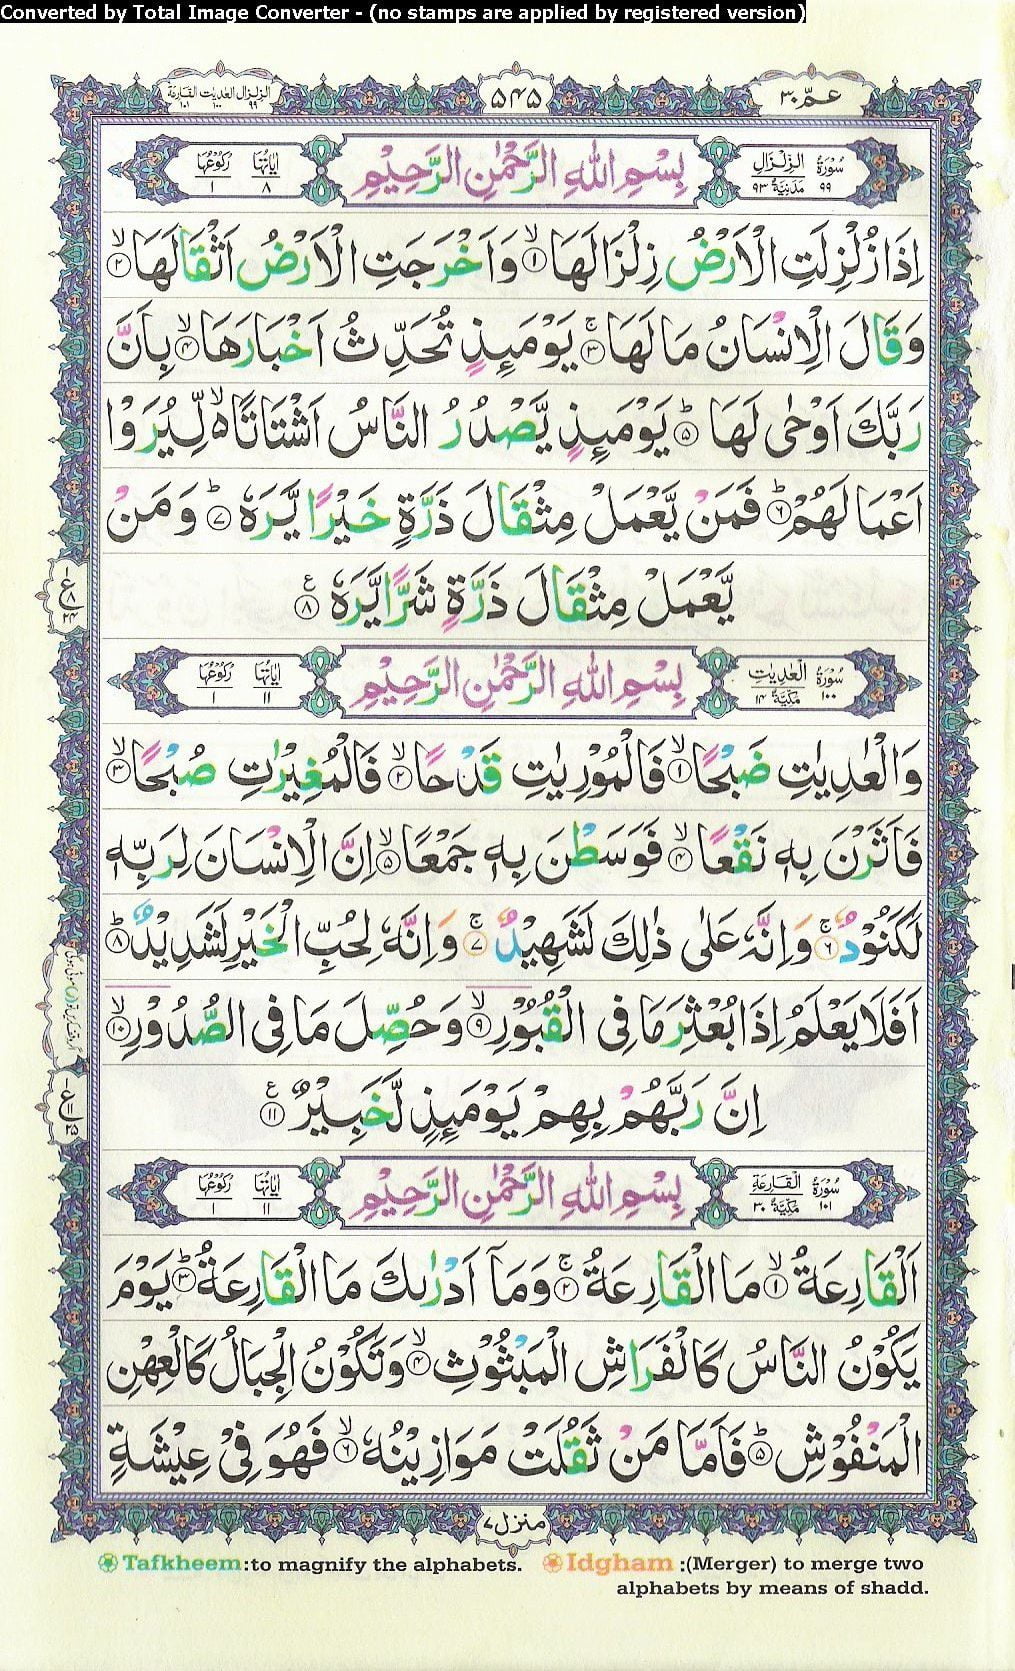 Converted by Total Image Converter - (no stamps are applied by registered version)
الزلزال ٩٩ العديت ١٠٠ القارعة ١٠١
٥٤٥
عمّ ٣٠
سُوْرَةُ الزِّلْزَالِ ٩٩ مَدَنِيَّةٌ ٩٣ بِسْمِ اللّٰهِ الرَّحْمٰنِ الرَّحِيْمِ اٰيَاتُهَا ٨ رُكُوْعُهَا ١
اِذَا زُلْزِلَتِ الْاَرْضُ زِلْزَالَهَا ۙ﴿١﴾ وَاَخْرَجَتِ الْاَرْضُ اَثْقَالَهَا ۙ﴿٢﴾
وَقَالَ الْاِنْسَانُ مَا لَهَا ۚ﴿٣﴾ يَوْمَئِذٍ تُحَدِّثُ اَخْبَارَهَا ۙ﴿٤﴾ بِاَنَّ
رَبَّكَ اَوْحٰى لَهَا ؕ﴿٥﴾ يَوْمَئِذٍ يَّصْدُرُ النَّاسُ اَشْتَاتًا ۙ۬ لِّيُرَوْا
اَعْمَالَهُمْ ؕ﴿٦﴾ فَمَنْ يَّعْمَلْ مِثْقَالَ ذَرَّةٍ خَيْرًا يَّرَهٗ ؕ﴿٧﴾ وَمَنْ
يَّعْمَلْ مِثْقَالَ ذَرَّةٍ شَرًّا يَّرَهٗ ﴿٨﴾ ع
ع ١ ٨ ٢٤
سُوْرَةُ الْعٰدِيٰتِ ١٠٠ مَكِّيَّةٌ ١٤ بِسْمِ اللّٰهِ الرَّحْمٰنِ الرَّحِيْمِ اٰيَاتُهَا ١١ رُكُوْعُهَا ١
وَالْعٰدِيٰتِ ضَبْحًا ۙ﴿١﴾ فَالْمُوْرِيٰتِ قَدْحًا ۙ﴿٢﴾ فَالْمُغِيْرٰتِ صُبْحًا ۙ﴿٣﴾
فَاَثَرْنَ بِهٖ نَقْعًا ۙ﴿٤﴾ فَوَسَطْنَ بِهٖ جَمْعًا ۙ﴿٥﴾ اِنَّ الْاِنْسَانَ لِرَبِّهٖ
لَكَنُوْدٌ ۚ﴿٦﴾ وَاِنَّهٗ عَلٰى ذٰلِكَ لَشَهِيْدٌ ۚ﴿٧﴾ وَاِنَّهٗ لِحُبِّ الْخَيْرِ لَشَدِيْدٌ ؕ﴿٨﴾
اَفَلَا يَعْلَمُ اِذَا بُعْثِرَ مَا فِى الْقُبُوْرِ ۙ﴿٩﴾ وَحُصِّلَ مَا فِى الصُّدُوْرِ ۙ﴿١٠﴾
اِنَّ رَبَّهُمْ بِهِمْ يَوْمَئِذٍ لَّخَبِيْرٌ ﴿١١﴾ ع
ع ١ ١١ ٢٥
سُوْرَةُ الْقَارِعَةِ ١٠١ مَكِّيَّةٌ ٣٠ بِسْمِ اللّٰهِ الرَّحْمٰنِ الرَّحِيْمِ اٰيَاتُهَا ١١ رُكُوْعُهَا ١
اَلْقَارِعَةُ ۙ﴿١﴾ مَا الْقَارِعَةُ ۚ﴿٢﴾ وَمَاۤ اَدْرٰىكَ مَا الْقَارِعَةُ ؕ﴿٣﴾ يَوْمَ
يَكُوْنُ النَّاسُ كَالْفَرَاشِ الْمَبْثُوْثِ ۙ﴿٤﴾ وَتَكُوْنُ الْجِبَالُ كَالْعِهْنِ
الْمَنْفُوْشِ ؕ﴿٥﴾ فَاَمَّا مَنْ ثَقُلَتْ مَوَازِيْنُهٗ ۙ﴿٦﴾ فَهُوَ فِيْ عِيْشَةٍ
منزل ٧
Tafkheem :to magnify the alphabets. Idgham :(Merger) to merge two
alphabets by means of shadd.